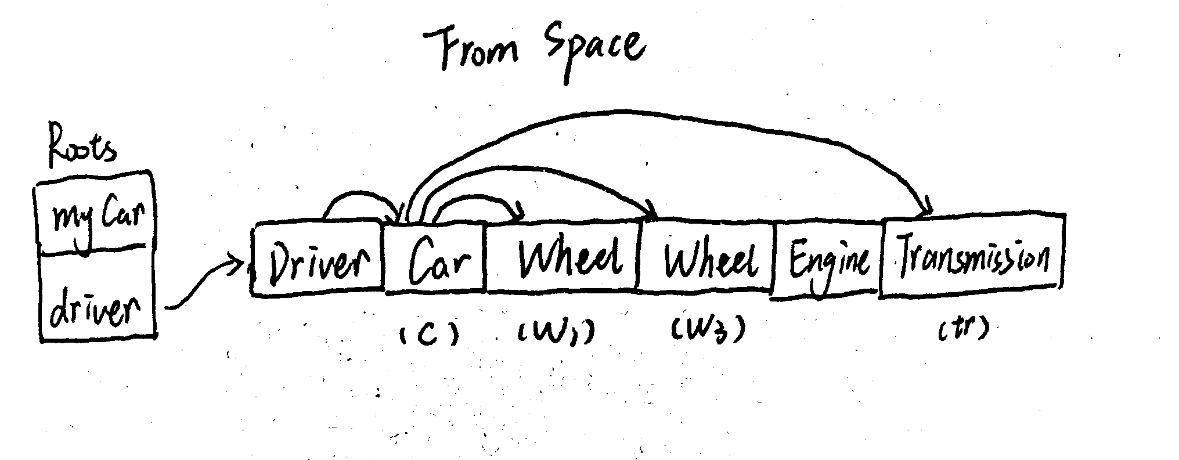 From Space
Roots
my Car
driver
Driver Car Wheel Wheel Engine Transmission
(C) (W1) (W3) (tr)